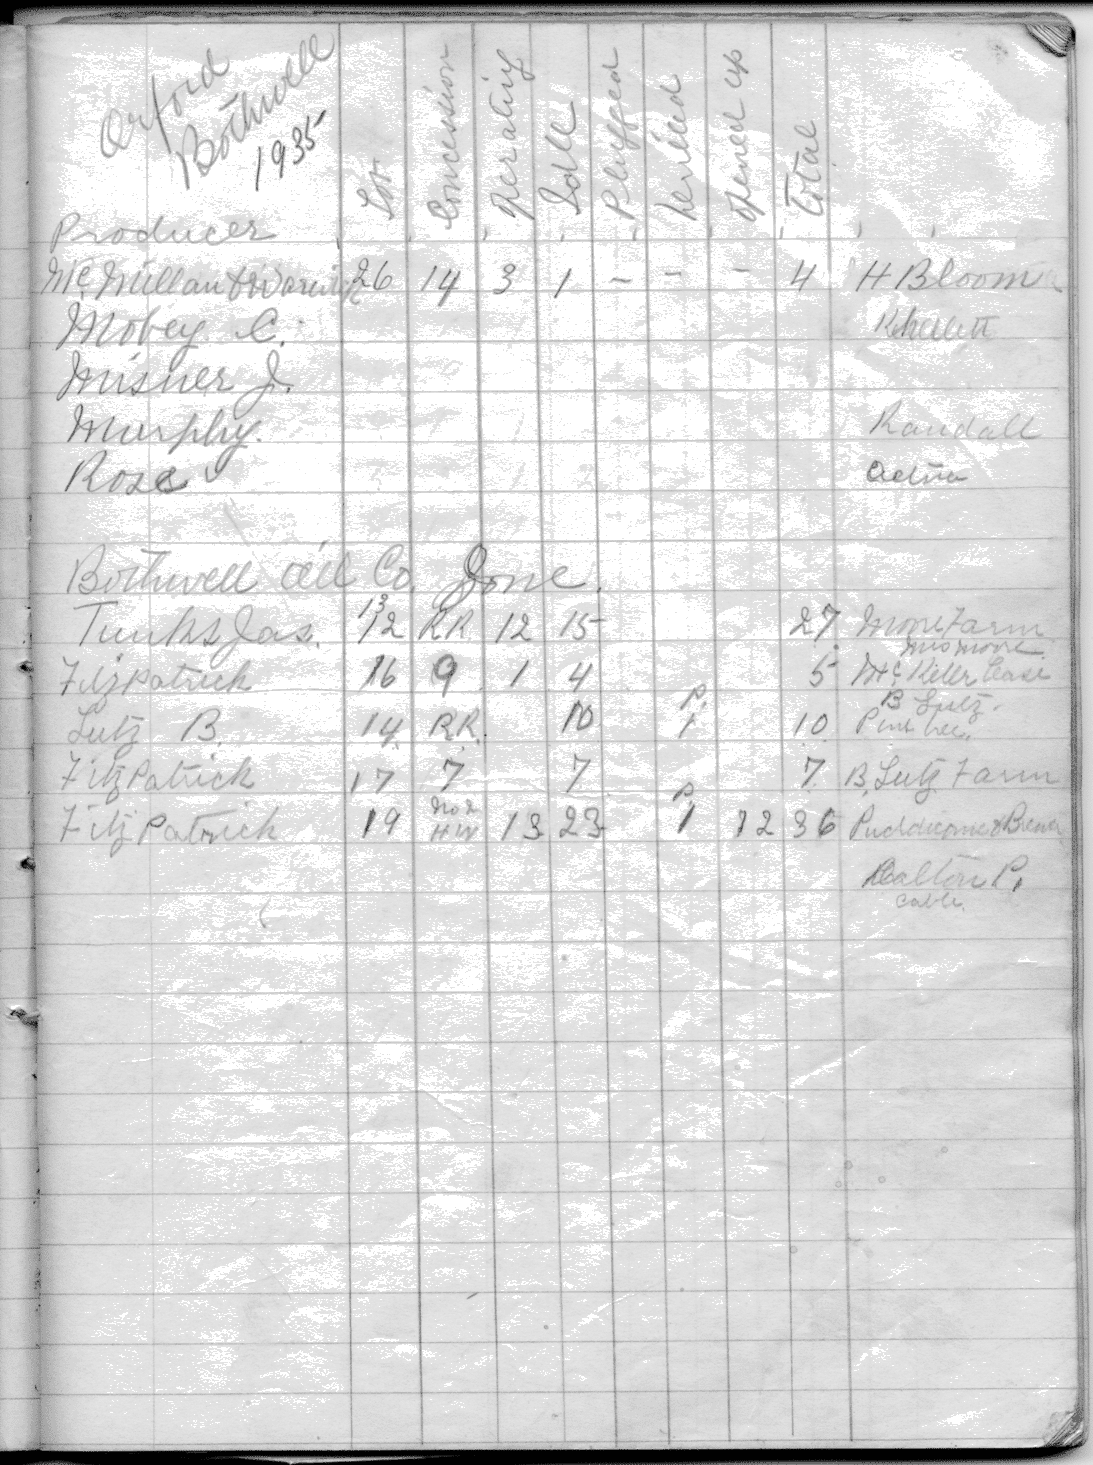 Orford
Bothwell
1935
Producer Lot Concession Operating Idle Plugged Drilled Opened up Total
McMillan & Warwick 26 14 3 1 - - - 4 H Bloom
Mobey C.
Misner J.
Murphy. Randall
Rose
Bothwell Oil Co.
13
Tunks Jas. 12 RR 12 15 27 More Farm
Mrs Moore
Fitzpatrick 16 9 1 4 5 McKeller Lease
P. B Lutz
Lutz B. 14 RR. 10 1 10
FitzPatrick 17 7 7 7 B, Lutz Farm
No 2 P
FitzPatrick 19 HW 13 23 1 12 36 Puddicome & Brown
Dalton P.
Cable.